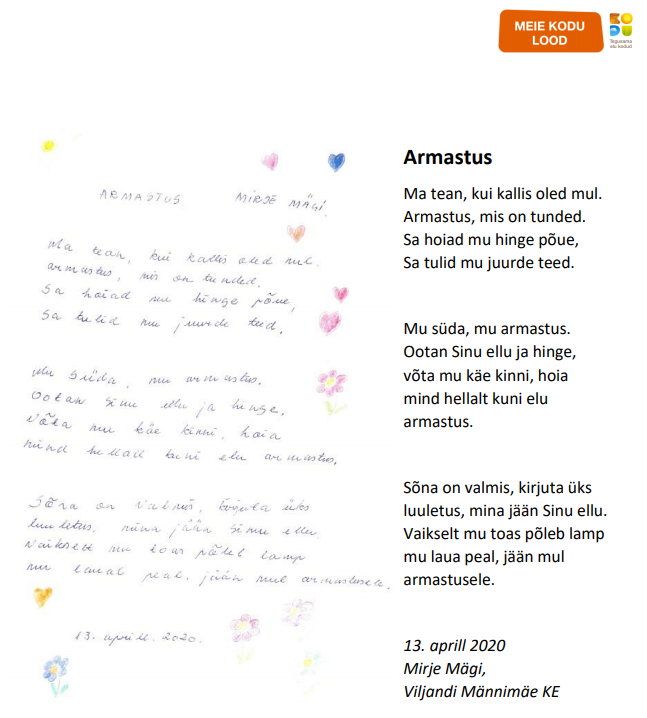 MEIE KODU
LOOD
KODU
Tegusama
elu kodud
ARMASTUS. MIRJE MÄGI.
Ma tean, kui kallis oled mul.
armastus, mis on tunded.
Sa hoiad mu hinge põue,
Sa tulid mu juurde teed.
Mu süda, mu armastus.
Ootan Sinu ellu ja hinge,
võta mu käe kinni, hoia
mind hellalt kuni elu armastus.
Sõna on valmis, kirjuta üks
luuletus. mina jään Sinu ellu
Vaikselt mu toas põleb lamp
mu laual peal. jään mul armastusele.
13. aprill. 2020.
Armastus
Ma tean, kui kallis oled mul.
Armastus, mis on tunded.
Sa hoiad mu hinge põue,
Sa tulid mu juurde teed.
Mu süda, mu armastus.
Ootan Sinu ellu ja hinge,
võta mu käe kinni, hoia
mind hellalt kuni elu
armastus.
Sõna on valmis, kirjuta üks
luuletus, mina jään Sinu ellu.
Vaikselt mu toas põleb lamp
mu laua peal, jään mul
armastusele.
13. aprill 2020
Mirje Mägi,
Viljandi Männimäe KE